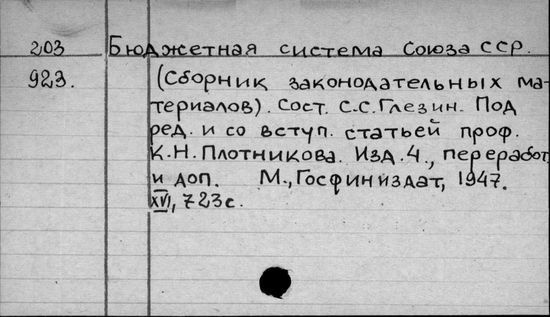 203 Бюджетная система Союза ССР.
923. (Сборник законодательных ма-
териалов). Сост. С.С.Глезин. Под
ред. и со вступ. статьей проф.
К.Н.Плотникова. Изд.4., переработ.
и доп. М., Госфиниздат, 1947.
XVI, 723с.